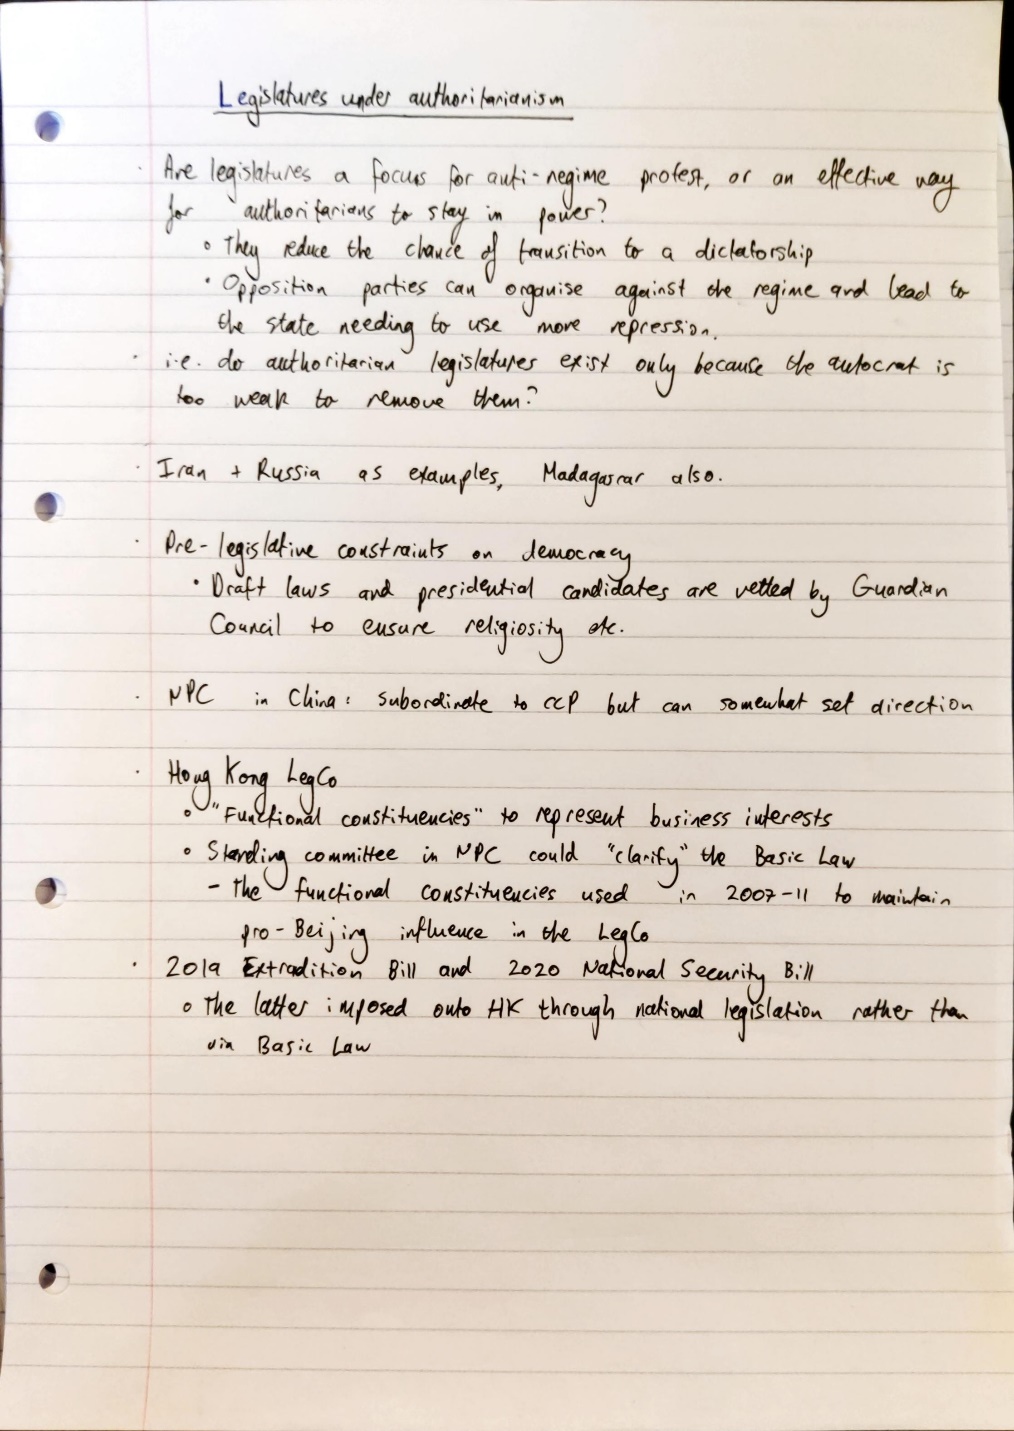 Legislatures under authoritarianism
· Are legislatures a focus for anti-regime protest, or an effective way
for authoritarians to stay in power?
◦ They reduce the chance of transition to a dictatorship
• Opposition parties can organise against the regime and lead to
the state needing to use more repression.
· i.e. do authoritarian legislatures exist only because the autocrat is
too weak to remove them?
· Iran + Russia as examples, Madagascar also.
· Pre-legislative constraints on democracy
• Draft laws and presidential candidates are vetted by Guardian
Council to ensure religiosity etc.
· NPC in China: subordinate to CCP but can somewhat set direction
· Hong Kong LegCo
◦ "Functional constituencies" to represent business interests
◦ Standing committee in NPC could "clarify" the Basic Law
- The functional constituencies used in 2007-11 to maintain
pro-Beijing influence in the LegCo
· 2019 Extradition Bill and 2020 National Security Bill
◦ The latter imposed onto HK through national legislation rather than
via Basic Law